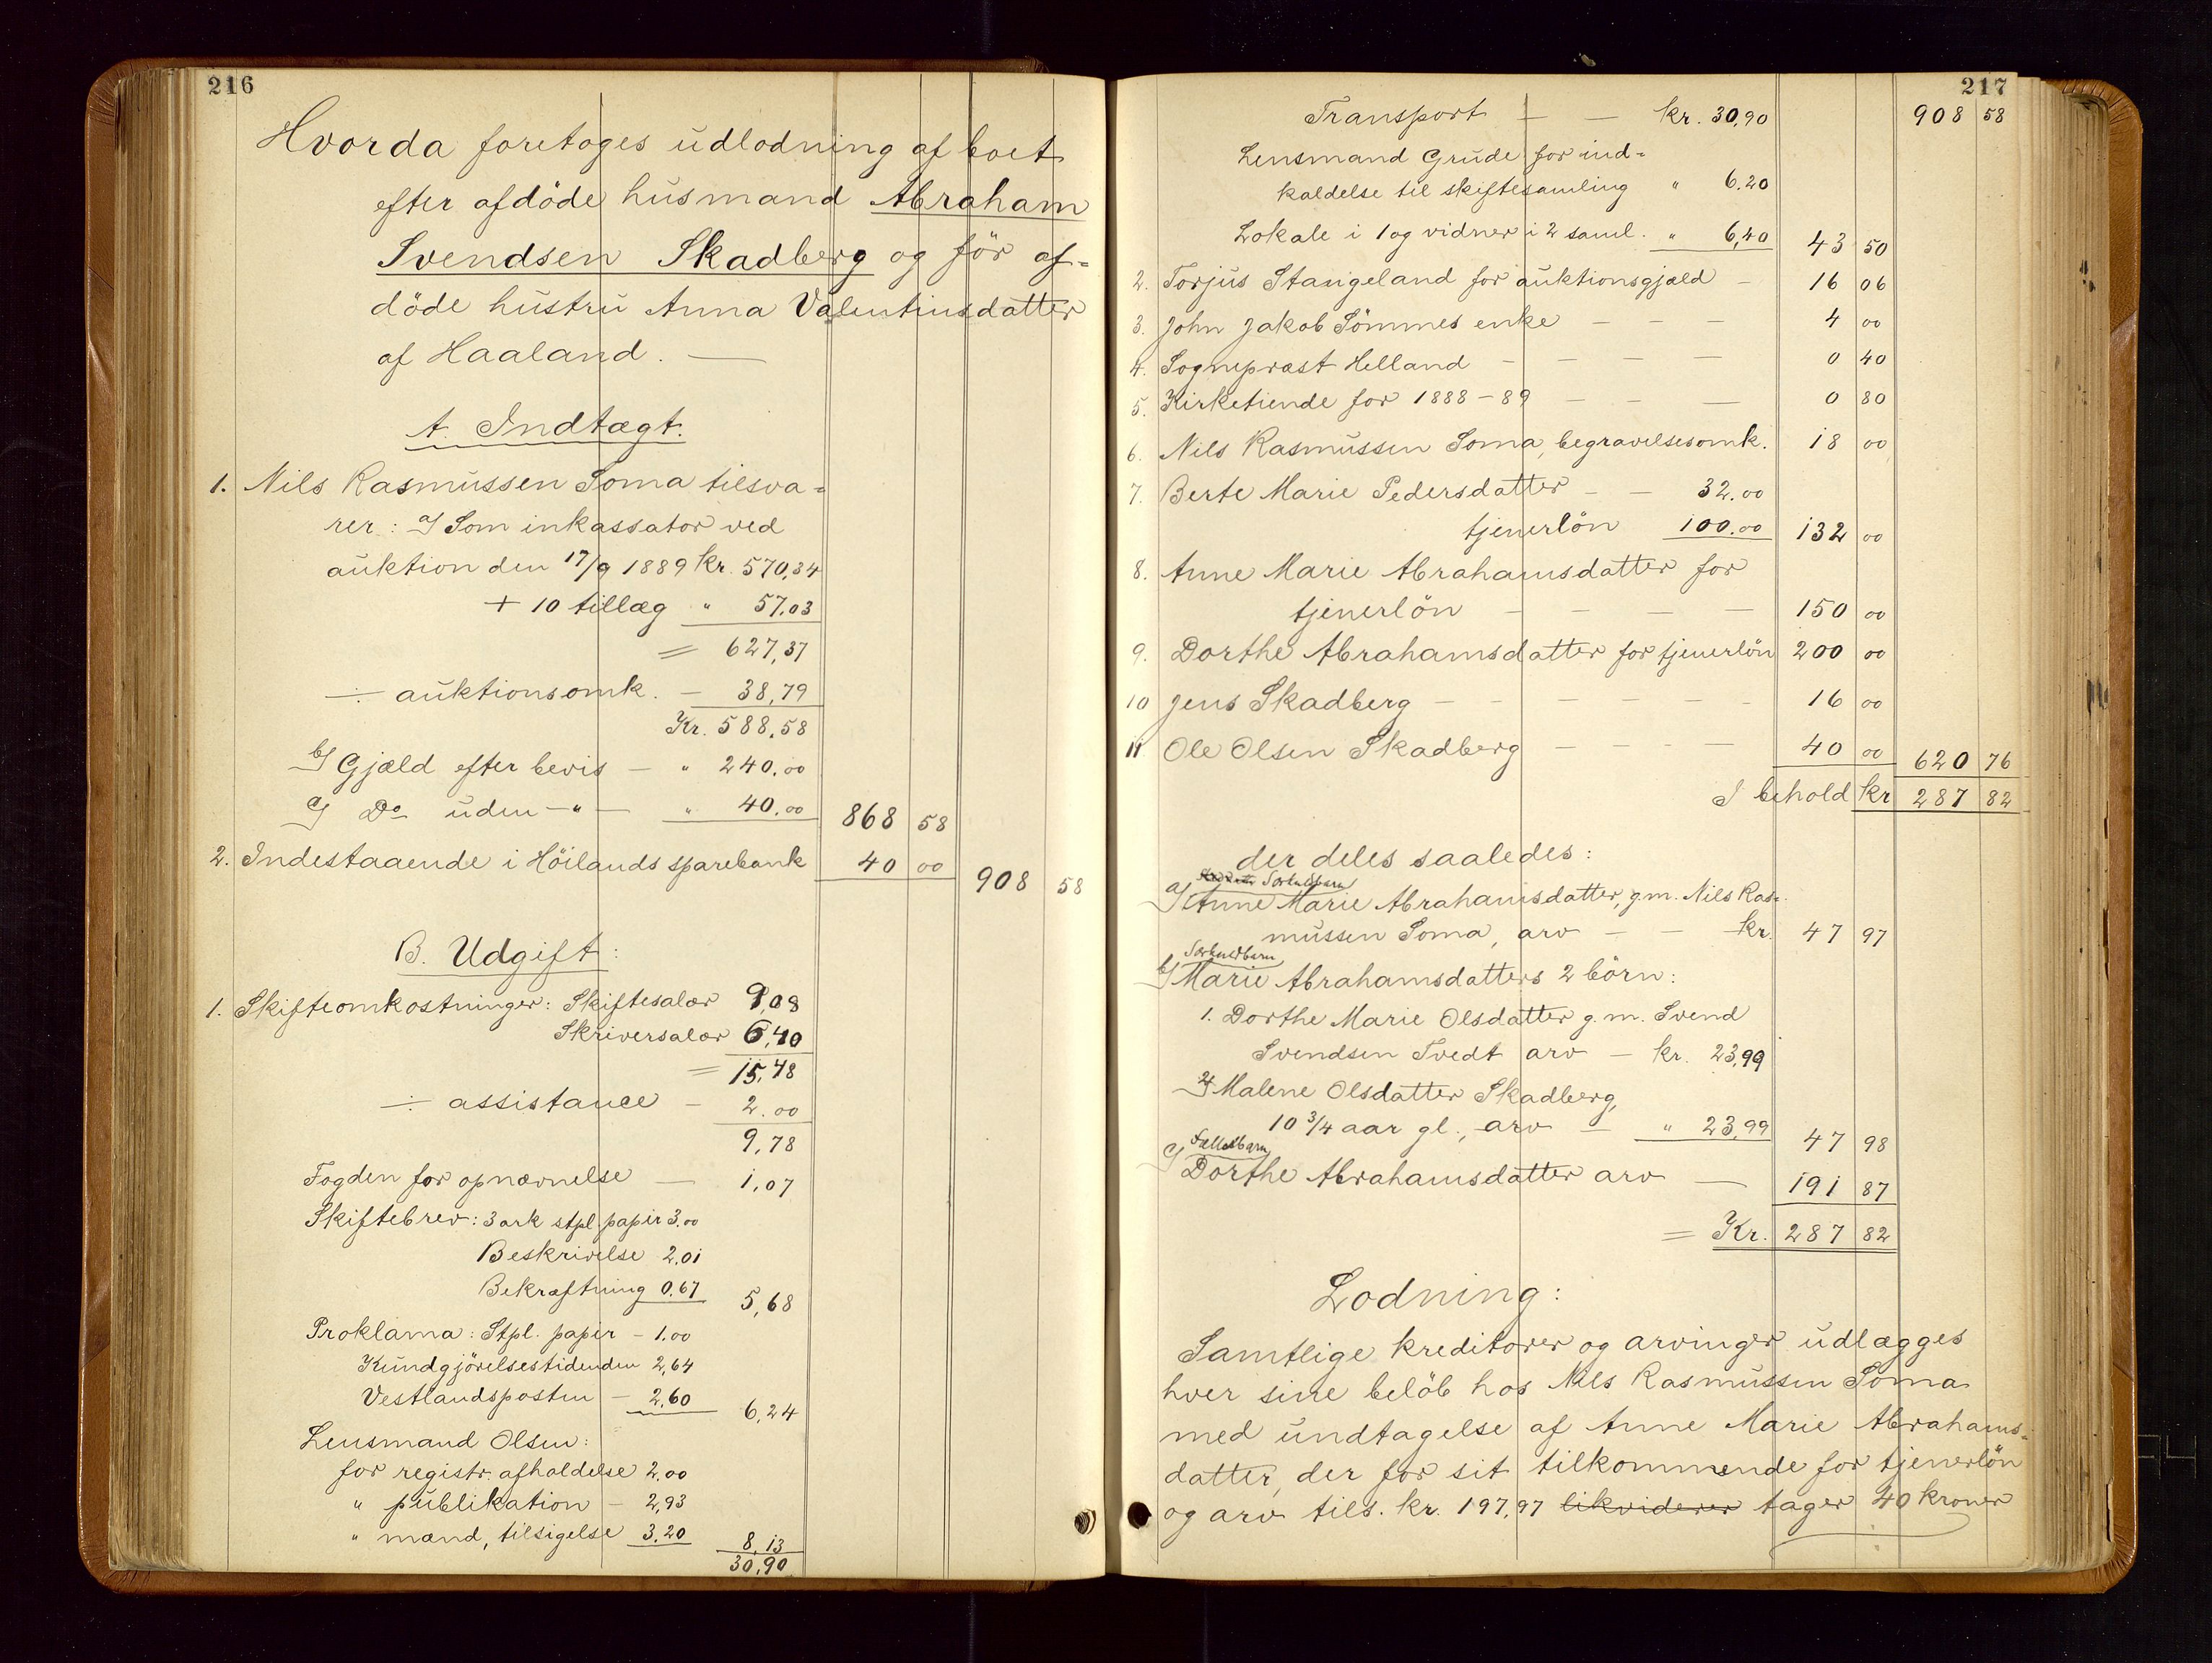 216
Hvorda foretoges udlodning af boet
efter afdöde husmand Abraham
Svendsen Skadberg og för af-
döde hustru Anna Valentinsdatter
af Haaland. —
A. Indtægt.
1. Nils Rasmussen Soma tilsva-
rer: a/ Som inkassator ved
auktion den 17/9 1889 Kr. 570,34
+ 10 tillæg " 57.03
= 627,37
÷ auktionsomk. — 38,79
Kr. 588.58
b/ Gjæld efter bevis — " 240.00
c/ Do uden — " — " 40.00 868 58
2. Indestaaende i Höilands sparebank 40 00 908 58
B. Udgift:
1. Skifteomkostninger: Skiftesalær 9,08
Skriversalær 6,40
= 15,48
÷ assistance — 2.00
9,78
Fogden for opnævnelse — 1,07
Skiftebrev: 3 ark stpl. papir 3.00
Beskrivelse 2,01
Bekræftning 0.67 5,68
Proklama: Stpl. papir — 1.00
Kundgjörelsestidenden 2,64
Vestlandsposten — 2,60 6,24
Lensmand Olsen:
for registr. afholdelse 2.00
" publikation — 2,93
" mænd, tilsigelse 3.20 8,13
30,90
217
Transport — — kr. 30,90 908 58
Lensmand Grude for ind-
kaldelse til skiftesamling " 6.20
Lokale i 1 og vidner i 2 saml. " 6,40 43 50
2. Torjus Stangeland for auktionsgjæld — 16 06
3. John Jakob Sömmes enke — — — 4 00
4. Sognepræst Helland — — — — 0 40
5. Kirketiende for 1888-89 — — — 0 80
6. Nils Rasmussen Soma, begravelsesomk. 18 00
7. Berte Marie Pedersdatter — — 32.00
tjenerlön 100.00 132 00
8. Anne Marie Abrahamsdatter for
tjenerlön — — — — 150 00
9. Dorthe Abrahamsdatter for tjenerlön 200 00
10 Jens Skadberg — — — — — — 16 00
11 Ole Olsen Skadberg — — — — 40 00 620 76
I behold kr 287 82
der deles saaledes:
Særkuldbarn
a/ Anne Marie Abrahamsdatter, g.m. Nils Ras-
mussen Soma, arv — — kr. 47 97
Særkuldbarn
b/ Marie Abrahamsdatters 2 börn:
1. Dorthe Marie Olsdatter g. m. Svend
Svendsen Tvedt arv — kr. 23,99
2/ Malene Olsdatter Skadberg,
10 3/4 aar gl., arv — " 23,99 47 98
Fællesbarn
c/ Dorthe Abrahamsdatter arv — 191 87
= Kr. 287 82
Lodning:
Samtlige kreditorer og arvinger udlægges
hver sine belöb hos Nils Rasmussen Soma
med undtagelse af Anne Marie Abrahams-
datter, der for sit tilkommende for tjenerlön
og arv tils. kr. 197,97 likviderer tager 40 kroner